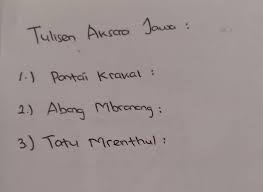 Tulisen Aksara Jawa :
1.) Pantai Krakal :
2.) Abang Mbranang :
3.) Tatu Mrenthul :